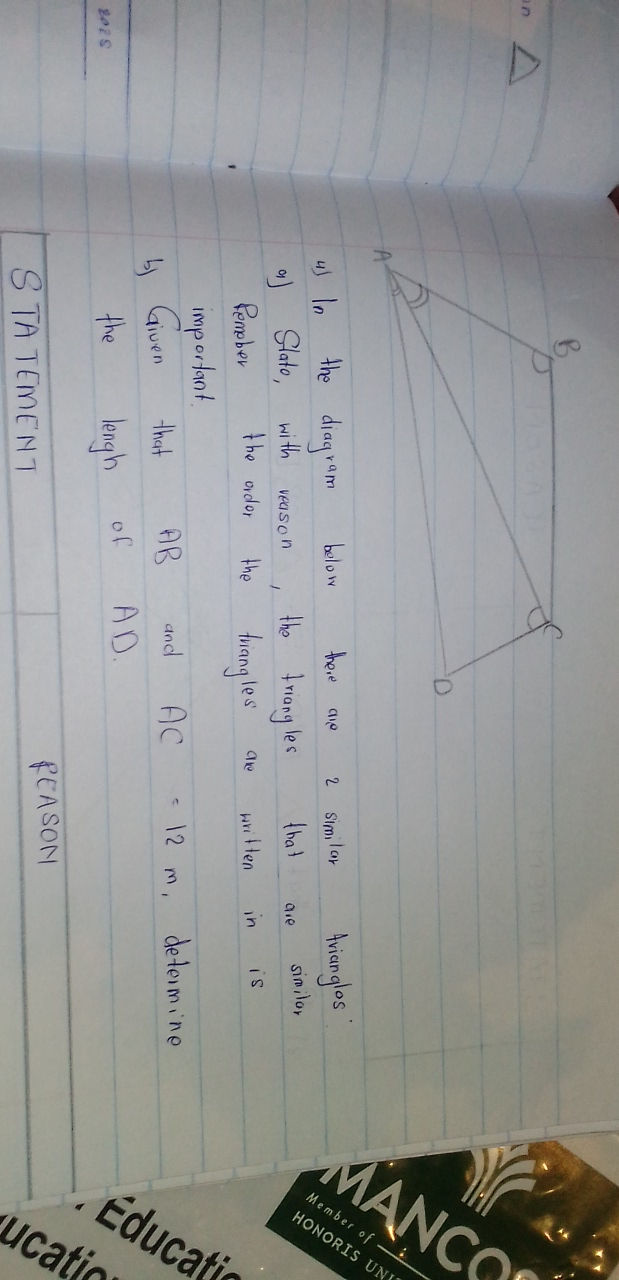 in
2025
B
A
C
D
4) In the diagram below there are 2 similar triangles.
a) State, with reason, the triangles that are similar
Remeber the order the triangles are written in is
important.
b) Given that AB and AC = 12 m, determine
the lengh of AD.
STATEMENT REASON
MANCO
Member of
HONORIS UNI
Educatio
ucatio